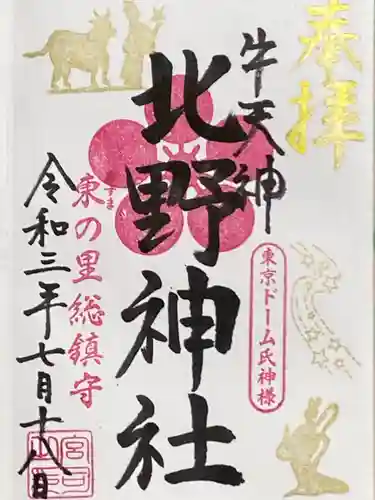 奉拝
牛天神
北野神社
東京ドーム氏神様
東の里総鎮守
づま
令和三年七月十八日